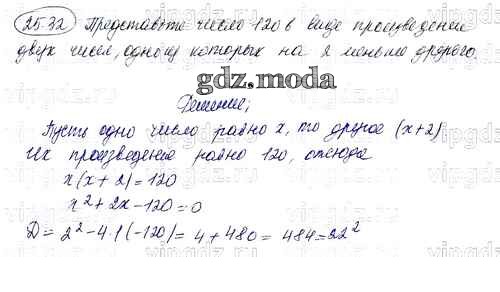 25.32 Представьте число 120 в виде произведения
двух чисел, одно из которых на 2 меньше другого.
gdz.moda
Решение;
Пусть одно число равно x, то другое (x+2)
Их произведение равно 120, отсюда
x(x+2)=120
x²+2x-120=0
D=2²-4·1·(-120)=4+480=484=22²